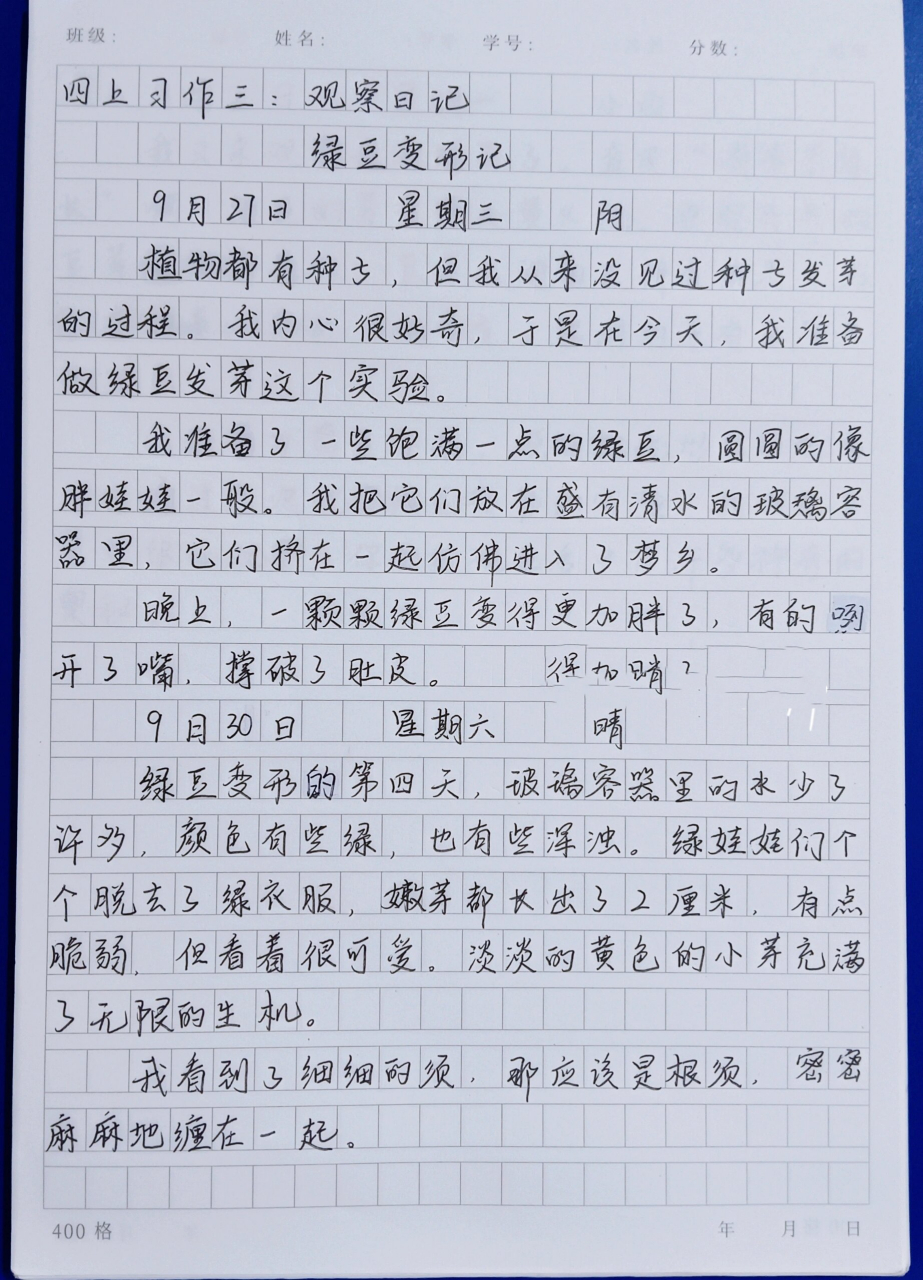 班级: 姓名: 学号: 分数:
四上习作三：观察日记
绿豆变形记
9月27日 星期三 阴
植物都有种子，但我从来没见过种子发芽
的过程。我内心很好奇，于是在今天，我准备
做绿豆发芽这个实验。
我准备了一些饱满一点的绿豆，圆圆的像
胖娃娃一般。我把它们放在盛有清水的玻璃容
器里，它们挤在一起仿佛进入了梦乡。
晚上，一颗颗绿豆变得更加胖了，有的咧
开了嘴，撑破了肚皮。 得加晴?
9月30日 星期六 晴
绿豆变形的第四天，玻璃容器里的水少了
许多，颜色有些绿，也有些浑浊。绿娃娃们个
个脱去了绿衣服，嫩芽都长出了2厘米，有点
脆弱，但看着很可爱。淡淡的黄色的小芽充满
了无限的生机。
我看到了细细的须，那应该是根须，密密
麻麻地缠在一起。
400格 年 月 日